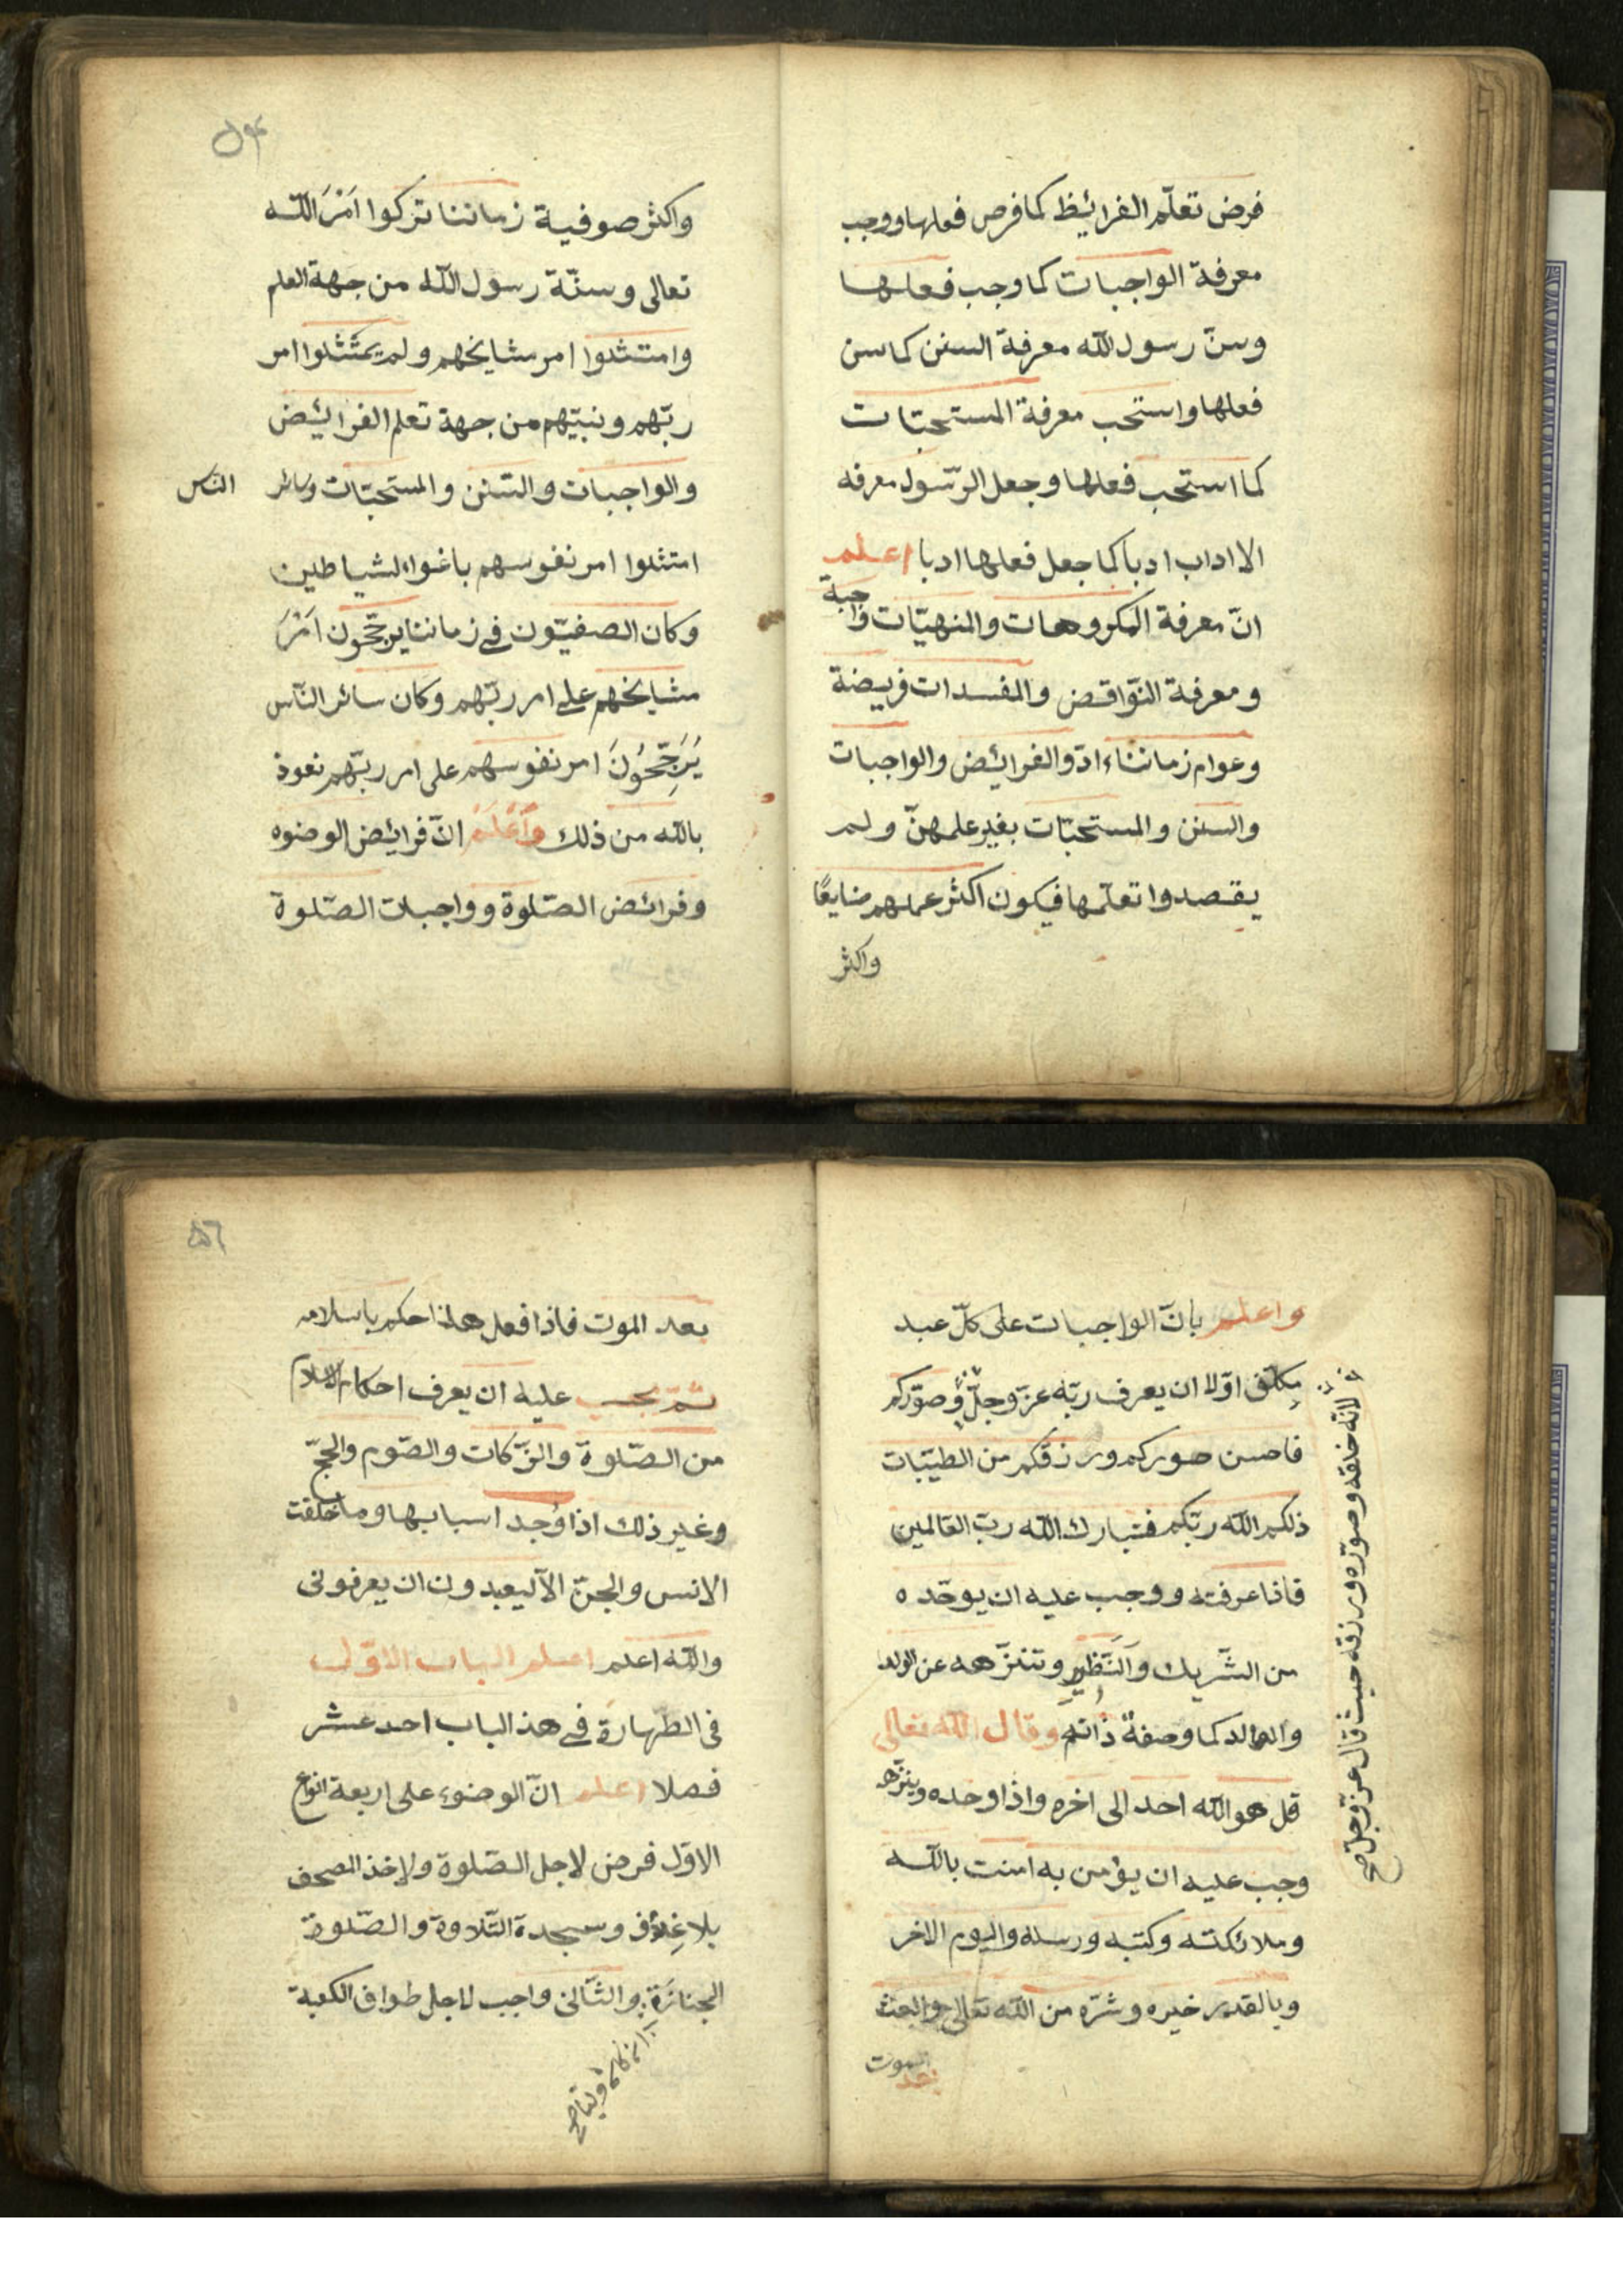 فرض تعلّم الفرائيظ كما فرص فعلها ووجب
معرفة الواجبات كما وجب فعلها
وسنّ رسول الله معرفة السنن كما سن
فعلها واستحب معرفة المستحبّات
كما استحب فعلها وجعل الرّسول معرفه
الااداب ادباً كما جعل فعلها ادبا اعلم
انّ معرفة المكروهات والمنهيّات واجبة
ومعرفة النّواقض والمفسدات فريضة
وعوام زماننا ادّوا الفرائيض والواجبات
والسنن والمستحبّات بغير علمهنّ ولم
يقصدوا تعلّمها فيكون اكثر عملهم ضايعًا
واكثر
واكثر صوفية زماننا تركوا اَمْرَ الله
تعالى وسنّة رسول الله من جهة العلم
وامتثلوا امر مشايخهم ولم يمتثلوا امر
ربّهم ونبيّهم من جهة تعلم الفرائيض
والواجبات والسّنن والمستحبّات وسائر الناس
امتثلوا امر نفوسهم باغواء الشياطين
وكان الصفيّون في زماننا يرجّحون اَمْرَ
مشايخهم على امر ربّهم وكان سائر النّاس
يُرَجِّحُونَ امر نفوسهم على امر ربّهم نعوذ
بالله من ذلك وَاَعْلَمْ انّ فرائيض الوضوء
وفرائض الصّلوة وواجبات الصّلوة
واعلم بانّ الواجبات على كلّ عبد
مكلّف اوّلا ان يعرف ربّه عزّ وجلّ وصوّركم
فاحسن صوركم ورزقكم من الطيّبات
ذلكم الله ربّكم فتبارك الله ربّ العالمين
فاذا عرفته ووجب عليه ان يوحّده
من الشّريك والنّظير وتنزّهه عن الولد
والوالد كما وصفة ذاته وقال الله تعالى
قل هو الله احد الى اخره واذا وحده وينزّهه
وجب عليه ان يؤمن به امنت بالله
وملائكته وكتبه ورسله واليوم الاخر
وبالقدر خيره وشرّه من الله تعالى والبعث
بعد الموت
لانّه خلقه وصوّره ورزقه حيث قال عزّ وجلّ صح
٥٦
بعد الموت فاذا فعل هذا حكم باسلامه
ثمّ يجب عليه ان يعرف احكام الاسلام
من الصّلوة والزّكات والصّوم والحجّ
وغير ذلك اذا وُجد اسبابها وما خلقت
الانس والجنّ الّا ليعبدون ان يعرفونى
والله اعلم اعلم الباب الاوّل
فى الطّهارة في هذ الباب احد عشر
فصلا اعلم انّ الوضوء على اربعة انواع
الاوّل فرض لاجل الصّلوة ولاخذ المصحف
بلا غِلاف وسجدة التّلاوة والصّلوة
الجنازة والثّانى واجب لاجل طواف الكعبة